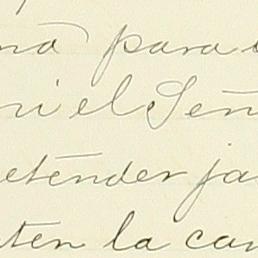 ná para
ni el Señ
etender ja
ten la can